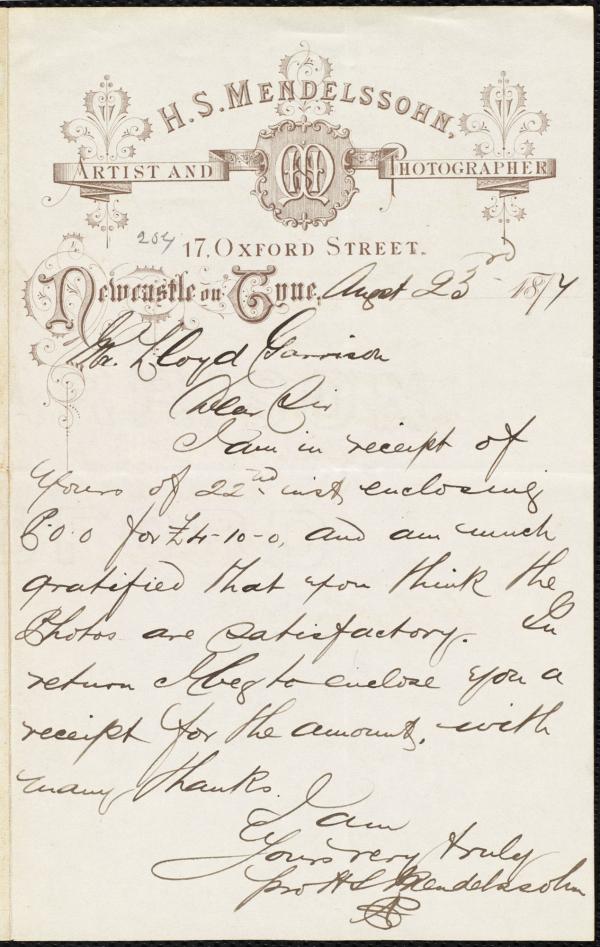 H. S. MENDELSSOHN,
ARTIST AND PHOTOGRAPHER
204
17, OXFORD STREET.
Newcastle on Tyne, Augst 23rd 1877
Mr. Lloyd Garrison
Dear Sir
I am in receipt of
yours of 22nd inst, enclosing
P.O.O for £4-10-0, and am much
gratified that you think the
Photos are satisfactory. In
return I beg to enclose you a
receipt for the amount, with
many thanks.
I am
Yours very truly
pro H S Mendelssohn